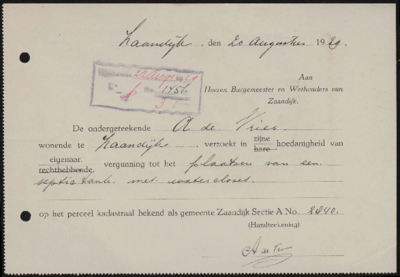 Zaandijk, den 20 Augustus 1929.
Aan
Heeren Burgemeester en Wethouders van
Zaandijk.
22 Aug. 29
No. 1456
De ondergeteekende A de Vries
wonende te Zaandijk, verzoekt in zijne hoedanigheid van
hare
eigenaar.
rechthebbende. vergunning tot het plaatsen van een
septictank met watercloset.
op het perceel kadastraal bekend als gemeente Zaandijk Sectie A No. 2340.
(Handteekening)
A de Vries